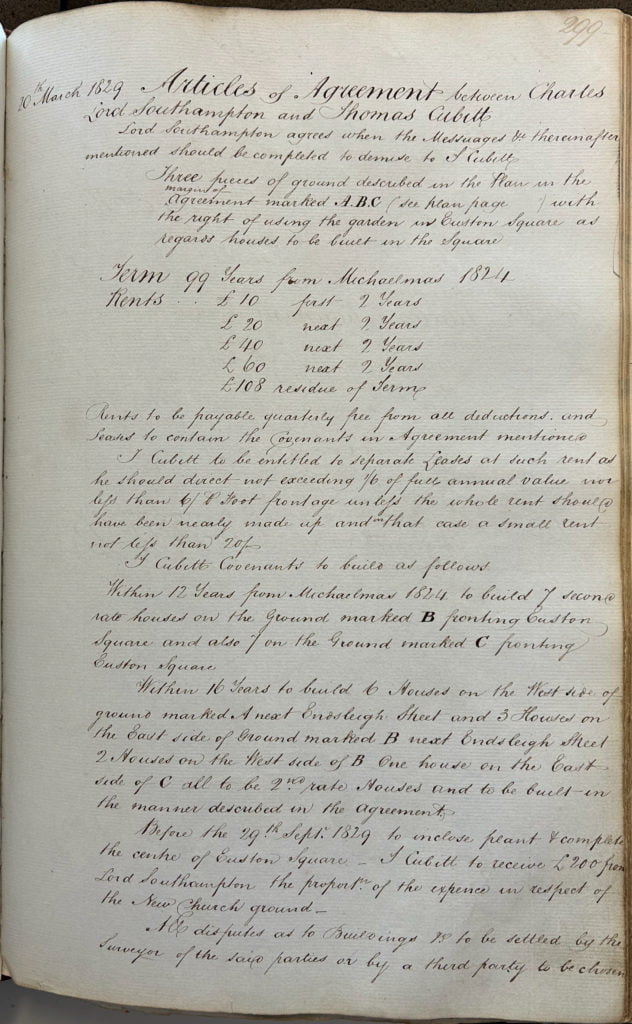 299
20th March 1829 Articles of Agreement between Charles
Lord Southampton and Thomas Cubitt
Lord Southampton agrees when the Messuages &c thereinafter
mentioned should be completed to demise to T Cubitt
Three pieces of ground described in the Plan in the
margin of
Agreement marked A.B.C (see plan page ) with
the right of using the garden in Euston Square as
regards houses to be built in the Square
Term 99 Years from Michaelmas 1824
Rents . . £10 first 2 Years
£20 next 2 Years
£40 next 2 Years
£60 next 2 Years
£108 residue of Term
Rents to be payable quarterly free from all deductions. and
Leases to contain the Covenants in Agreement mentioned
T Cubitt to be entitled to separate Leases at such rent as
he should direct not exceeding 1/6 of full annual value nor
less than 6/ P Foot frontage unless the whole rent should
have been nearly made up and in that case a small rent
not less than 20/-
T Cubitt Covenants to build as follows
Within 12 Years from Michaelmas 1824 to build 7 second
rate houses on the Ground marked B fronting Euston
Square and also 7 on the Ground marked C fronting
Euston Square
Within 16 Years to build 6 Houses on the West side of
ground marked A next Endsleigh Street and 3 Houses on
the East side of Ground marked B next Endsleigh Street
2 Houses on the West side of B One house on the East
side of C all to be 2nd rate Houses and to be built in
the manner described in the Agreement
Before the 29th Sept. 1829 to inclose plant & complete
the centre of Euston Square – T Cubitt to receive £200 from
Lord Southampton the proportn of the expence in respect of
the New Church ground –
All disputes as to Buildings &c to be settled by the
Surveyor of the said parties or by a third party to be chosen